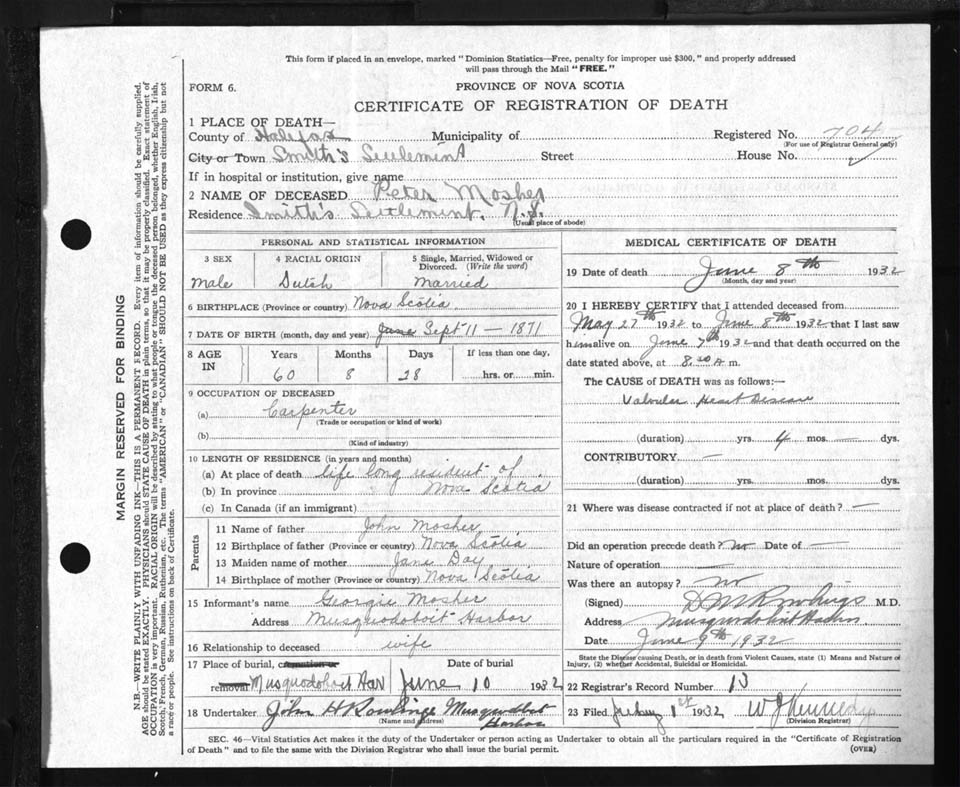 This form if placed in an envelope, marked "Dominion Statistics—Free, penalty for improper use $300," and properly addressed
will pass through the Mail "FREE."
FORM 6.
PROVINCE OF NOVA SCOTIA
CERTIFICATE OF REGISTRATION OF DEATH
1 PLACE OF DEATH—
County of Halifax Municipality of Registered No. 704
(For use of Registrar General only)
City or Town Smith's Settlement Street House No.
If in hospital or institution, give name
2 NAME OF DECEASED Peter Mosher
Residence Smith's Settlement, N.S.
(Usual place of abode)
PERSONAL AND STATISTICAL INFORMATION
3 SEX 4 RACIAL ORIGIN 5 Single, Married, Widowed or Divorced. (Write the word)
Male Dutch Married
6 BIRTHPLACE (Province or country) Nova Scotia
7 DATE OF BIRTH (month, day and year) June Sept 11 — 1871
8 AGE IN Years Months Days If less than one day,
60 8 28 hrs. or min.
9 OCCUPATION OF DECEASED
(a) Carpenter
(Trade or occupation or kind of work)
(b)
(Kind of industry)
10 LENGTH OF RESIDENCE (in years and months)
(a) At place of death life long resident of
(b) In province Nova Scotia
(c) In Canada (if an immigrant)
Parents
11 Name of father John Mosher
12 Birthplace of father (Province or country) Nova Scotia
13 Maiden name of mother Jane Day
14 Birthplace of mother (Province or country) Nova Scotia
15 Informant's name Georgie Mosher
Address Musquodoboit Harbor
16 Relationship to deceased wife
17 Place of burial, cremation or Date of burial
removal Musquodoboit Har June 10 1932
18 Undertaker John H Rowlings Musquodobt Harbor
(Name and address)
MEDICAL CERTIFICATE OF DEATH
19 Date of death June 8th 1932
(Month, day and year)
20 I HEREBY CERTIFY that I attended deceased from
May 27th 1932 to June 8th 1932 that I last saw
him alive on June 7th 1932 and that death occurred on the
date stated above, at 8.30 A m.
The CAUSE of DEATH was as follows:—
Valvular Heart Disease
(duration) yrs. 4 mos. — dys.
CONTRIBUTORY. —
(duration) yrs. mos. dys.
21 Where was disease contracted if not at place of death? —
Did an operation precede death? no Date of —
Nature of operation —
Was there an autopsy? no
(Signed) D M Rowlings M.D.
Address Musquodoboit Harbor
Date June 9th 1932
State the Disease causing Death, or in death from Violent Causes, state (1) Means and Nature of
Injury, (2) whether Accidental, Suicidal or Homicidal.
22 Registrar's Record Number 13
23 Filed July 1st 1932 W J Kennedy
(Division Registrar)
SEC. 46—Vital Statistics Act makes it the duty of the Undertaker or person acting as Undertaker to obtain all the particulars required in the "Certificate of Registration
of Death" and to file the same with the Division Registrar who shall issue the burial permit.
(OVER)
MARGIN RESERVED FOR BINDING
N.B.—WRITE PLAINLY WITH UNFADING INK—THIS IS A PERMANENT RECORD. Every item of information should be carefully supplied.
AGE should be stated EXACTLY. PHYSICIANS should STATE CAUSE OF DEATH in plain terms, so that it may be properly classified. Exact statement of
OCCUPATION is very important. RACIAL ORIGIN will be described by stating to what people or tongue the deceased person belonged, whether English, Irish,
Scotch, French, German, Russian, Ruthenian, etc. The terms "AMERICAN" or "CANADIAN" SHOULD NOT BE USED as they express citizenship but not
a race or people. See instructions on back of Certificate.